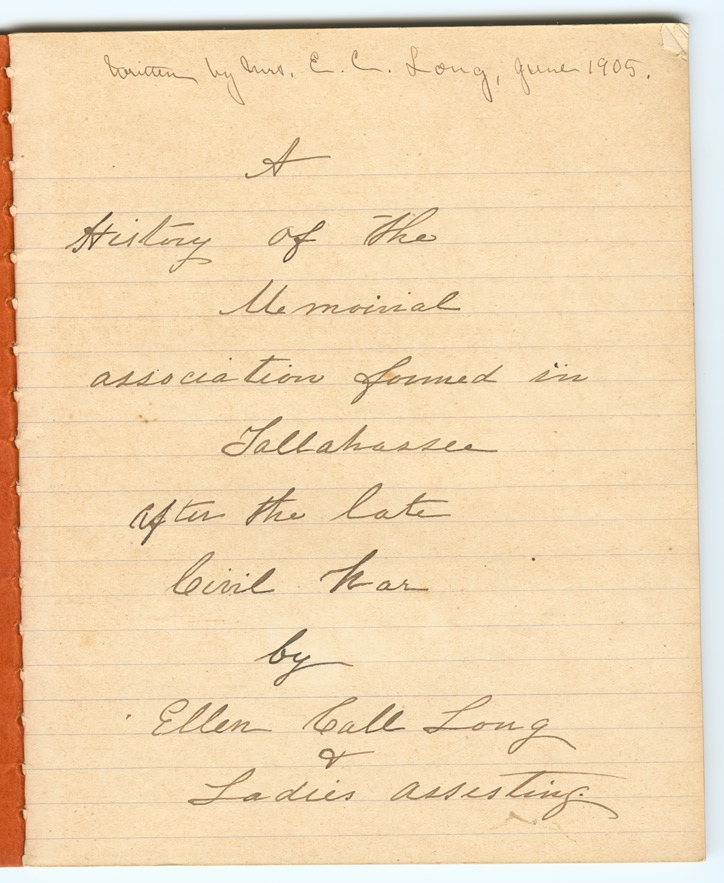 Written by Mrs. E. C. Long, June 1905.
A
History of the
Memoirial
association formed in
Tallahassee
after the late
Civil War
by
Ellen Call Long
&
Ladies assisting.